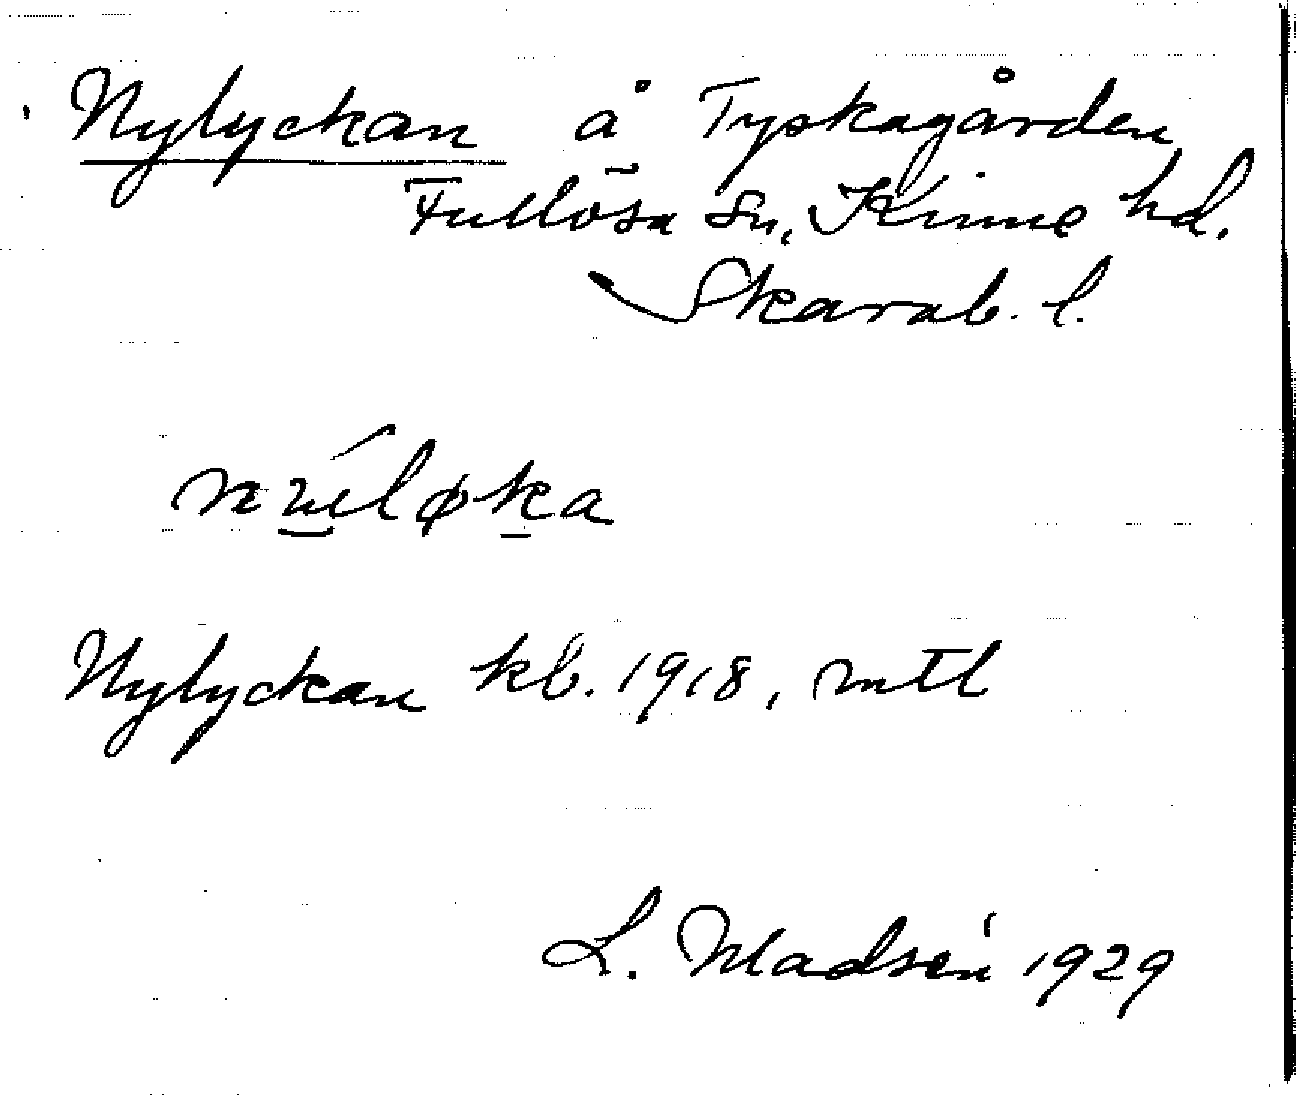 Nylyckan å Tyskagården
Fullösa sn, Kinne hd.
Skarab. l.
Nylyckan kb. 1918, mtl
L. Madsén 1929